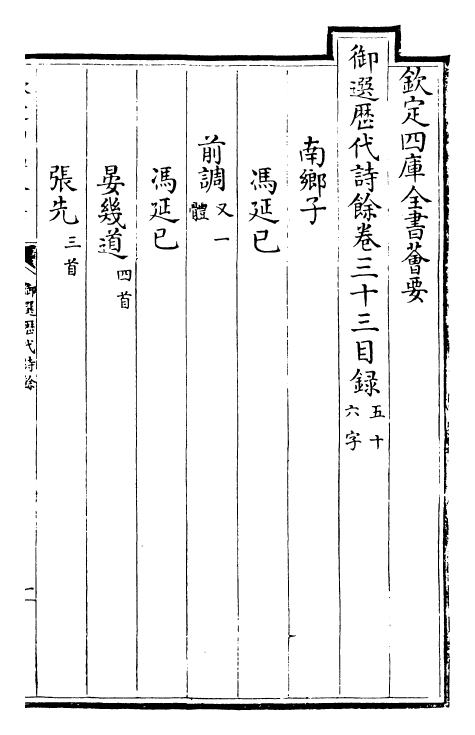 欽定四庫全書薈要
御選歷代詩餘卷三十三目録 五十六字
南鄉子
馮延巳
前調 又一體
馮延巳
晏幾道 四首
張先 三首
御選歷代詩餘
一